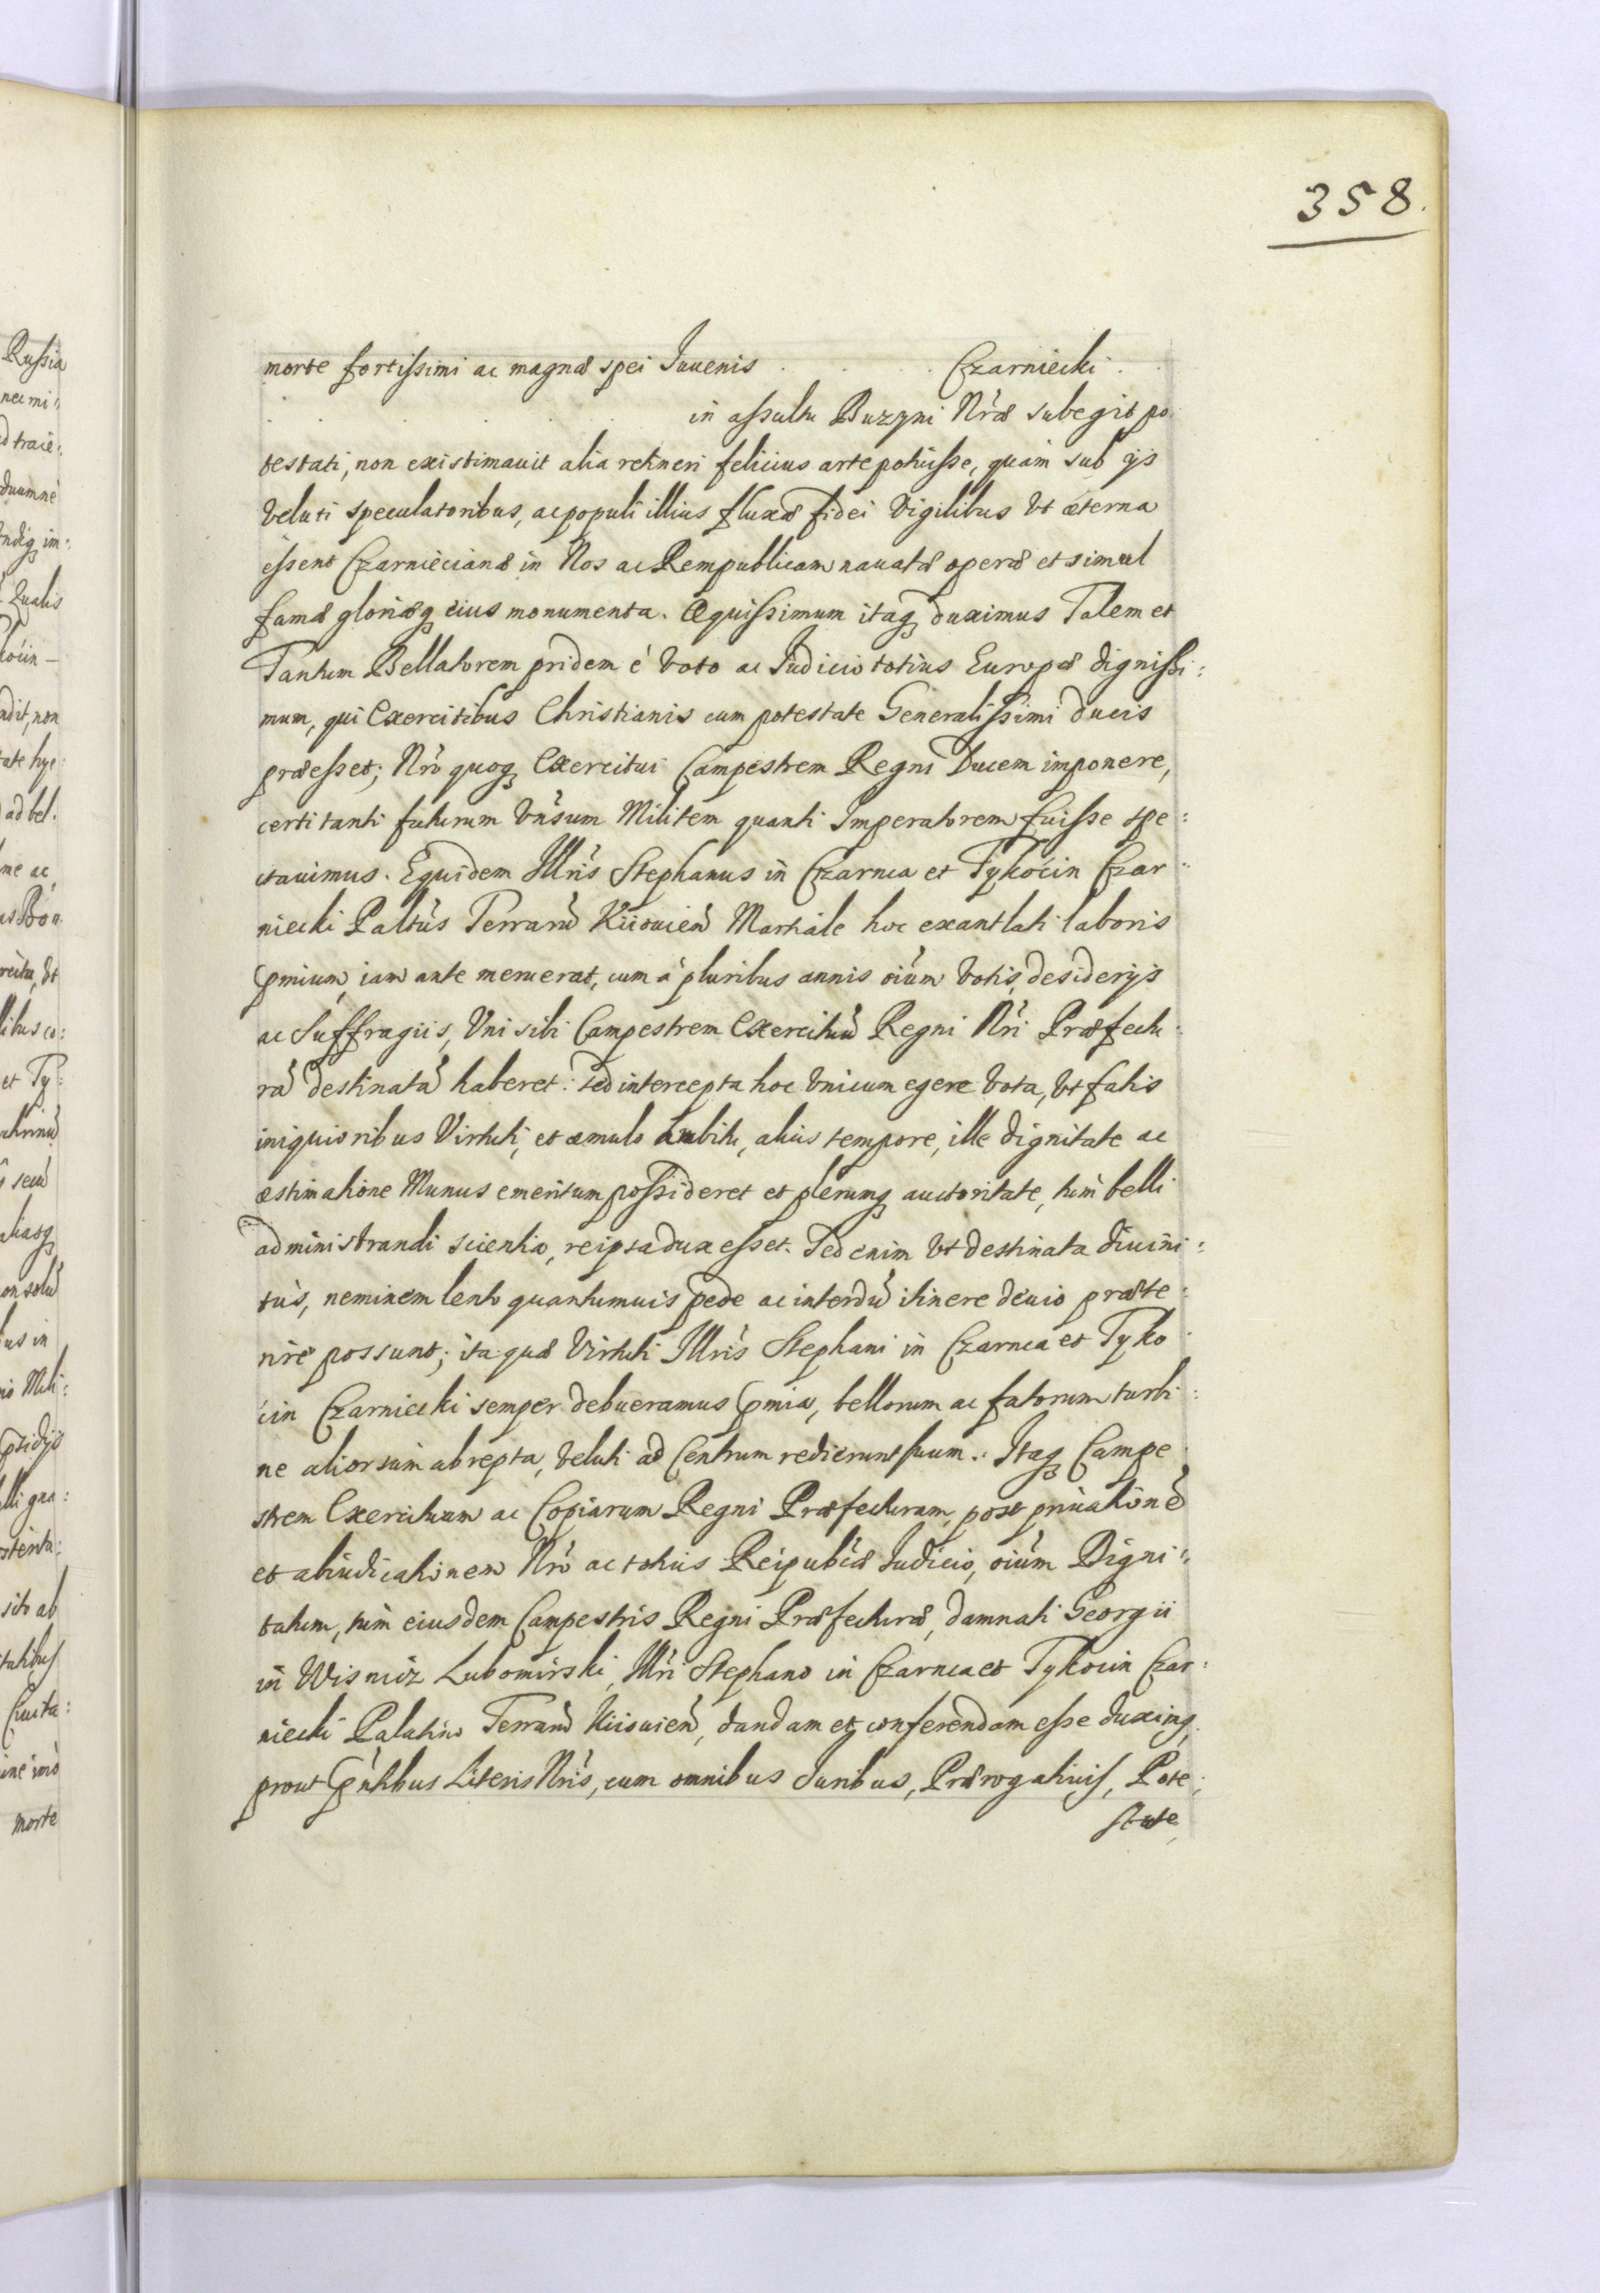 358.
morte fortissimi ac magnæ spei Iuuenis . . . . Czarniecki .
. . . in assultu Buzyni Nræ subegit po
testati, non existimauit alia retineri felicius arte potuisse, quàm sub ijs
veluti speculatoribus, ac populi illius fluxæ fidei vigilibus vt æterna
essent Czarniecianæ in Nos ac Rempublicam nauatæ operæ et simul
famæ gloriæq eius monumenta. Æquissimum itaq duximus Talem et
Tantum Bellatorem pridem è voto ac Iudicio totius Europæ dignissi:
mum, qui Exercitibus Christianis cum potestate Generalissimi ducis
præesset; Nrõ quoq Exercitui Campestrem Regni Ducem imponere,
certi tanti futurum vnsum Militem quanti Imperatorem fuisse spe:
ctauimus. Equidem Illris Stephanus in Czarnca et Tykocin Czar:
niecki Paltus Terrarũ Kiiouień Martiale hoc exantlati laboris
pmium iam ante meruerat, cum à pluribus annis oium votis, desiderijs
ac Suffragiis, Vni sibi Campestrem Exercituũ Regni Nri Præfectu
rã destinatã haberet: sed intercepta hoc vnicum egere vota, vt fatis
iniquioribus Virtuti, et æmulo Ambitu, alius tempore, ille dignitate ac
æstimatione Munus emeritum possideret et plerunq auctoritate, tum belli
administrandi scientia, reipsa dux esset. Sed enim vt destinata diuini:
tus, neminem lento quantumuis pede ac interdũ itinere deuio præte:
rire possunt; ita quæ Virtuti Illris Stephani in Czarnca et Tyko
cin Czarniecki semper debueramus pmia, bellorum ac fatorum turbi:
ne aliorsum abrepta, veluti ad Centrum redierunt suum. Itaq Campe
strem Exercituum ac Copiarum Regni Præfecturam, post priuationẽ
et abiudicationem Nrõ ac totius Reipubcæ Iudicio, oium Digni:
tatum, tum eiusdem Campestris Regni Præfecturæ, damnati Georgii
in Wisnicz Lubomirski, Illri Stephano in Czarnca et Tykocin Czar:
niecki Palatino Terrarũ Kiiouień, dandam et conferendam esse duximq,
prout pntibus Literis Nris, cum omnibus Iuribus, Prærogatiuis, Pote:
state,
Russia
nec mi:
d traie:
duumne
ndiq im:
Qualis
kocin
ndit, non
tate hye
ad bel:
me ac
et Ty:
secũ
us in
Mili:
sito ab
morte